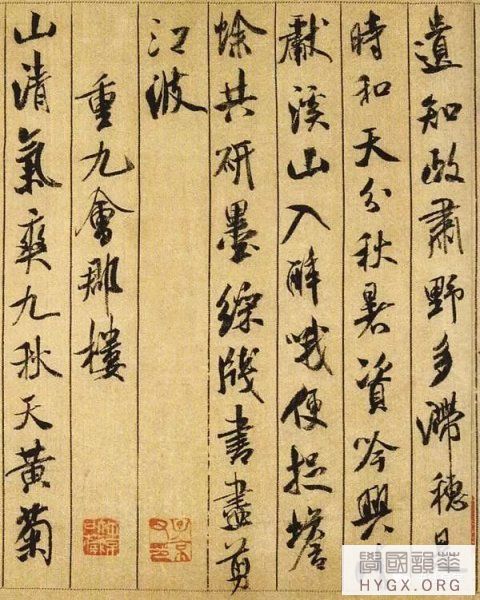 遺知政肅野多滯穗是
時和天分秋暑資吟興
獻溪山入醉哦便捉蟾
蜍共研墨綵牋書盡剪
江波
重九會郡樓
山清氣爽九秋天黃菊
華韻國學
HYGX.ORG